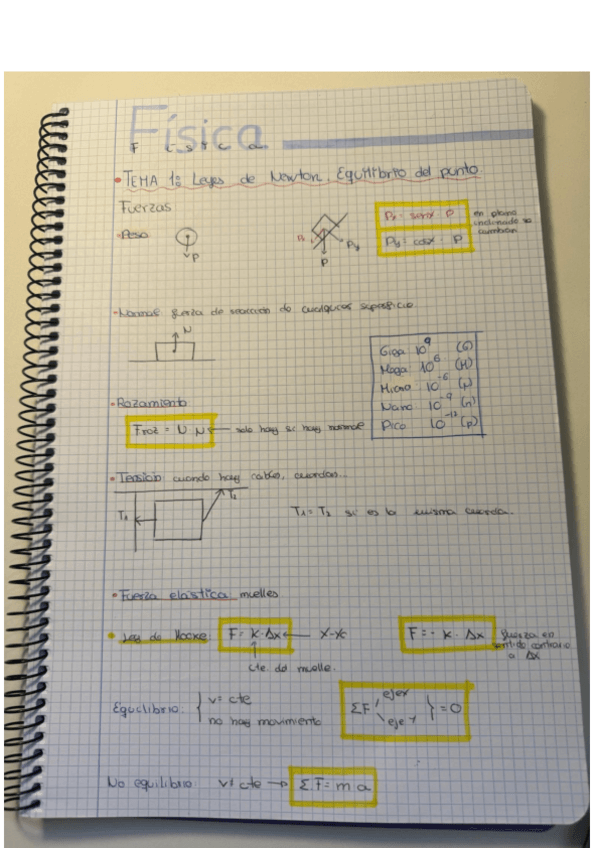 Física
F ísica
• TEMA 1: Leyes de Newton. Equilibrio del punto
Fuerzas
• Peso
P
Px
Py
P
Px = senα · P
Py = cosα · P
en plano
inclinado se
• Normal fuerza de reacción de cualquier superficie.
N
Giga 10^9 (G)
Mega 10^6 (M)
Micro 10^-6 (μ)
Nano 10^-9 (n)
Pico 10^-12 (p)
• Rozamiento
Froz = μ · N ← solo hay si hay normal
• Tensión cuando hay cables, cuerdas...
T1
T2
T1 = T2 si es la misma cuerda.
• Fuerza elástica muelles
• Ley de Hooke: F = K · Δx ← x-x0
F = - K · Δx
fuerza en
sentido contrario
a Δx
↑
cte del muelle.
Equilibrio: { v = cte
no hay movimiento
ΣF eje x
eje y } = 0
No equilibrio: v ≠ cte → ΣF = m · a